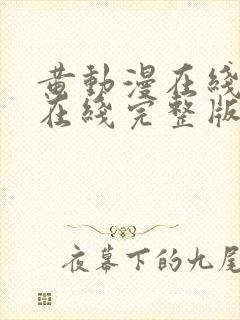 黄動漫在綫
在綫完整版
夜幕下的九尾